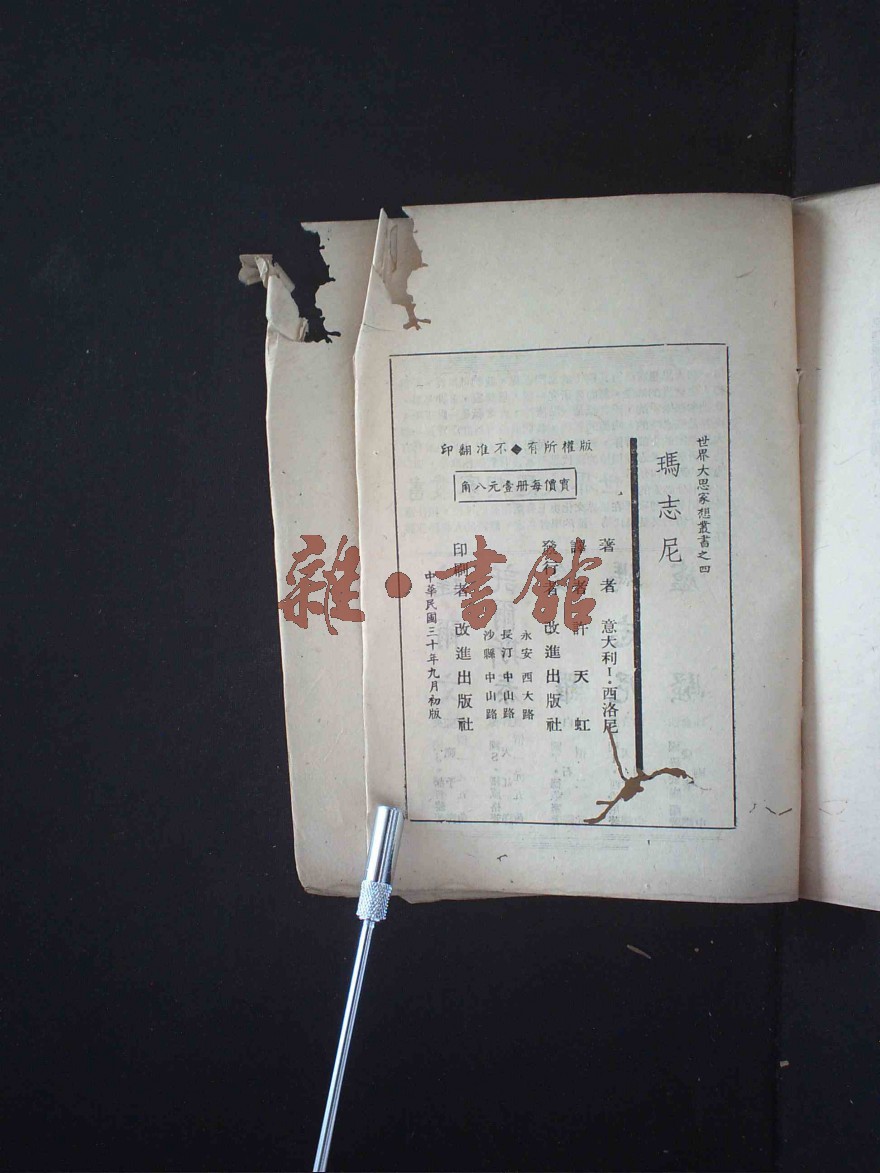 世界大思家想叢書之四
瑪志尼
著者 意大利I·西洛尼
譯者 許天虹
發行者 改進出版社
永安 西大路
長汀 中山路
沙縣 中山路
印刷者 改進出版社
中華民國三十年九月初版
版權所有◆不准翻印
實價每册壹元八角
雜·書館